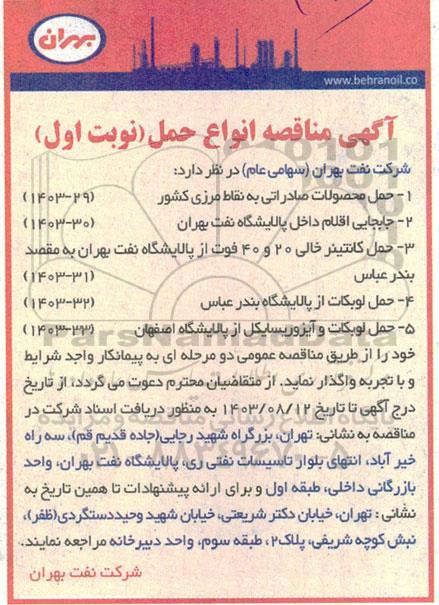 بهران
www.behranoil.co
آگهی مناقصه انواع حمل (نوبت اول)
شرکت نفت بهران (سهامی عام) در نظر دارد:
۱- حمل محصولات صادراتی به نقاط مرزی کشور (۲۹-۱۴۰۳)
۲- جابجایی اقلام داخل پالایشگاه نفت بهران (۳۰-۱۴۰۳)
۳- حمل کانتینر خالی ۲۰ و ۴۰ فوت از پالایشگاه نفت بهران به مقصد
بندر عباس (۳۱-۱۴۰۳)
۴- حمل لوبکات از پالایشگاه بندر عباس (۳۲-۱۴۰۳)
۵- حمل لوبکات و آیزوریسایکل از پالایشگاه اصفهان (۳۳-۱۴۰۳)
خود را از طریق مناقصه عمومی دو مرحله ای به پیمانکار واجد شرایط
و با تجربه واگذار نماید. از متقاضیان محترم دعوت می گردد، از تاریخ
درج آگهی تا تاریخ ۱۴۰۳/۰۸/۱۲ به منظور دریافت اسناد شرکت در
مناقصه به نشانی: تهران، بزرگراه شهید رجایی(جاده قدیم قم)، سه راه
خیر آباد، انتهای بلوار تاسیسات نفتی ری، پالایشگاه نفت بهران، واحد
بازرگانی داخلی، طبقه اول و برای ارائه پیشنهادات تا همین تاریخ به
نشانی : تهران، خیابان دکتر شریعتی، خیابان شهید وحیددستگردی(ظفر)،
نبش کوچه شریفی، پلاک۲، طبقه سوم، واحد دبیرخانه مراجعه نمایند.
شرکت نفت بهران
ParsNamadData